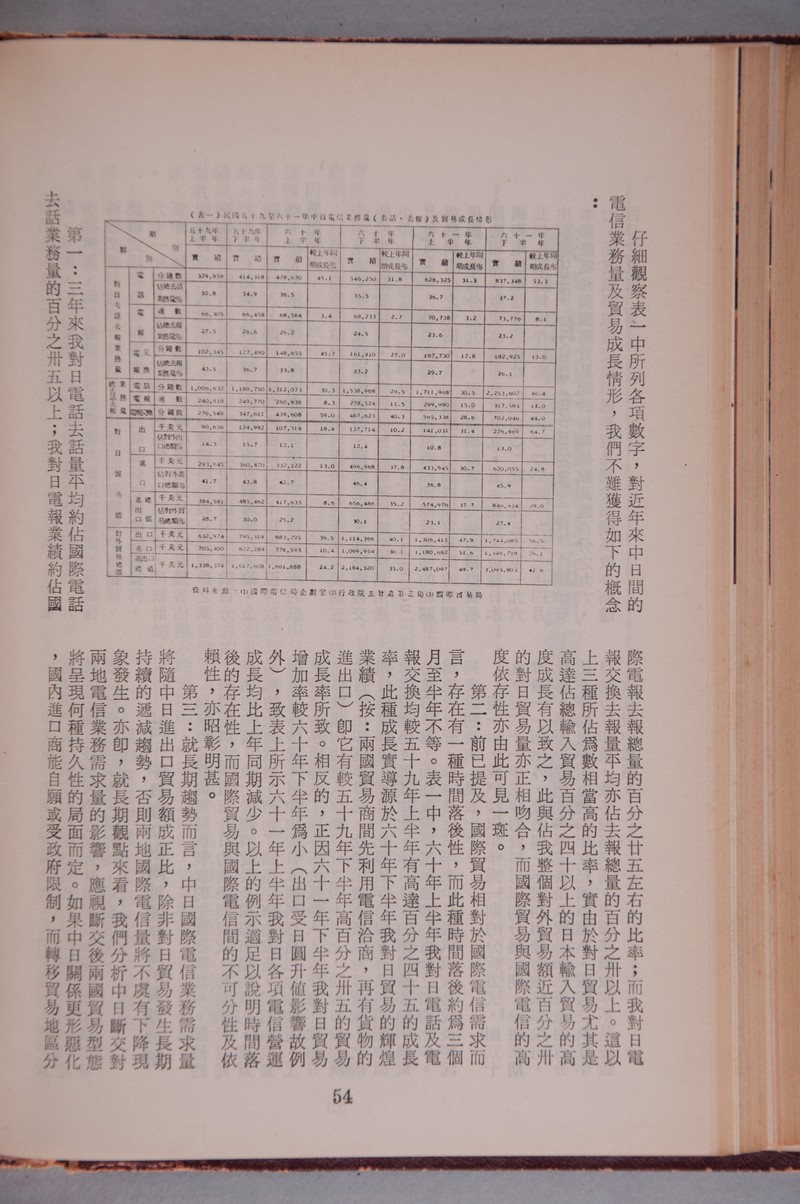 仔細觀察表一中所列各項數字，對近年來中日間的
電信業務量及貿易成長情形，我們不難獲得如下的概念
：
（表一）民國五十九年至六十一年中日電信業務量（去話、去報）及貿易成長情形
期別 類別 五十九年上半年 五十九年下半年 六十年上半年 六十年下半年 六十一年上半年 六十一年下半年
實績 實績 實績 較上年同期成長% 實績 較上年同期成長% 實績 較上年同期成長% 實績 較上年同期成長%
對日去話去報業務量
電話 分鐘數 329,939 414,318 478,670 45.1 546,250 31.8 628,525 31.3 837,348 53.3
佔總去話業務量% 32.8 34.9 36.5 35.5 36.7 37.2
電報 通數 66,305 66,458 68,584 3.4 68,233 2.7 70,738 3.2 73,776 8.1
佔總去報業務量% 27.5 26.6 26.2 24.5 23.6 23.2
電報交換 分鐘數 102,345 127,490 148,655 45.7 161,910 27.0 167,730 12.8 182,925 13.0
佔總去報業務量% 43.5 36.7 33.8 33.2 29.7 26.1
總去話去報業務量
電話 分鐘數 1,006,632 1,188,750 1,312,073 30.3 1,538,968 29.5 1,711,968 30.5 2,253,602 46.4
電報 通數 240,919 249,770 260,939 8.3 278,524 11.5 299,990 15.0 317,581 14.0
電報交換 分鐘數 276,549 347,611 439,608 59.0 487,623 40.3 565,338 28.6 702,046 44.0
對日貿易額
出口 千美元 90,636 124,992 107,314 18.4 137,714 10.2 141,031 31.4 226,869 64.7
佔對外出口總額% 14.3 15.7 12.1 12.4 10.8 13.0
進口 千美元 293,945 360,470 332,122 13.0 496,968 37.8 433,945 30.7 620,055 24.8
佔對外進口總額% 41.7 43.8 42.7 46.4 36.8 45.9
進出口總值 千美元 384,581 485,462 417,633 8.6 656,486 35.2 574,976 37.7 846,924 29.0
佔對外貿易總額% 28.7 30.0 25.2 30.1 23.1 27.4
對外貿易總額
出口 千美元 632,974 795,319 883,295 39.5 1,114,366 40.1 1,306,415 47.9 1,744,085 56.5
進口 千美元 705,400 822,289 778,593 10.4 1,069,954 30.1 1,180,682 51.6 1,349,718 26.1
進出口總值 千美元 1,338,374 1,617,608 1,661,888 24.2 2,184,320 35.0 2,487,097 49.7 3,093,803 41.6
資料來源：(1)國際電信局企劃室(2)行政院主計處第三局(3)國際貿易局
第一：三年來我對日電話去話量平均約佔國際電話
去話業務量的百分之卅五以上；我對日電報業績約佔國
際電報去報總量的百分之廿五左右的比率；而我對日電
報交換去報量平均亦佔去報總量的百分之卅以上。這以
上三種所佔爲數相當高的比率，實由於對日貿易尤其是
高達佔總輸入貿易百分之四十以上的日本輸入貿易的高
度成長有以致之，此與佔我整個對外貿易額近百分之卅
的對日貿易量亦正相吻合，而國際貿易與國際電信的高
度依存性亦由此可見一斑。
第二：前已提及，國際貿易相對於國際電信需求而
言，存在有一種時間落後性，而此種時間落後約爲三個
月至半年不等。表一中，六十年上半年我對日電話及電
報交換均較五十九年上半年有高達百分之四十五的成長
率，此種成長實導源於六十年下半年我對日貿易的輝煌
業績（按：兩國貿易商間先利用電信洽商，再有貨物的
進出口）卽它有較五十九年下半年高百分之卅五的貿易
成長率所致。相反的，正因六十一年下半年我對日貿易
增加率較六十年下半年爲小（出口受日圓升値影響故例
外），致表上所示六十一年上半年我對日各項電信營運
成長均比上年同期減少。以上的例示適足以說明時間落
後的存在性，而國際貿易與國際電信間的不可分性及依
賴性，亦昭彰明甚。
第三：就長期趨勢而言，中日國際電信業務需求量
將隨中日進出口貿易額成正比，除非對日貿易發生長期
持續的遞減趨勢，否則兩地國際電信量將不虞有下降現
象發生。亦卽，就長期觀點來看，我們分析中日斷交對
兩地電信業務需求量的影響，應視斷交後兩國貿易型態
將呈現何種持久性的局面而定。如果中日關係更形惡化
，國內進口商能自願或受政府限制，而轉移貿易地區分
54